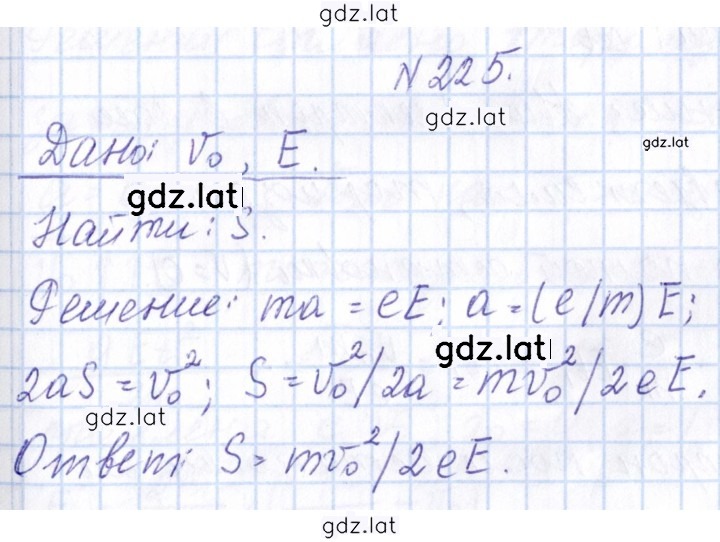 gdz.lat
N 225.
gdz.lat
Дано: v₀, E.
gdz.lat
gdz.lat
Найти: S.
Решение: ma = eE; a = (e/m) E;
gdz.lat
2aS = v₀²; S = v₀²/2a = mv₀²/2eE.
gdz.lat
Ответ: S = mv₀²/2eE.
gdz.lat